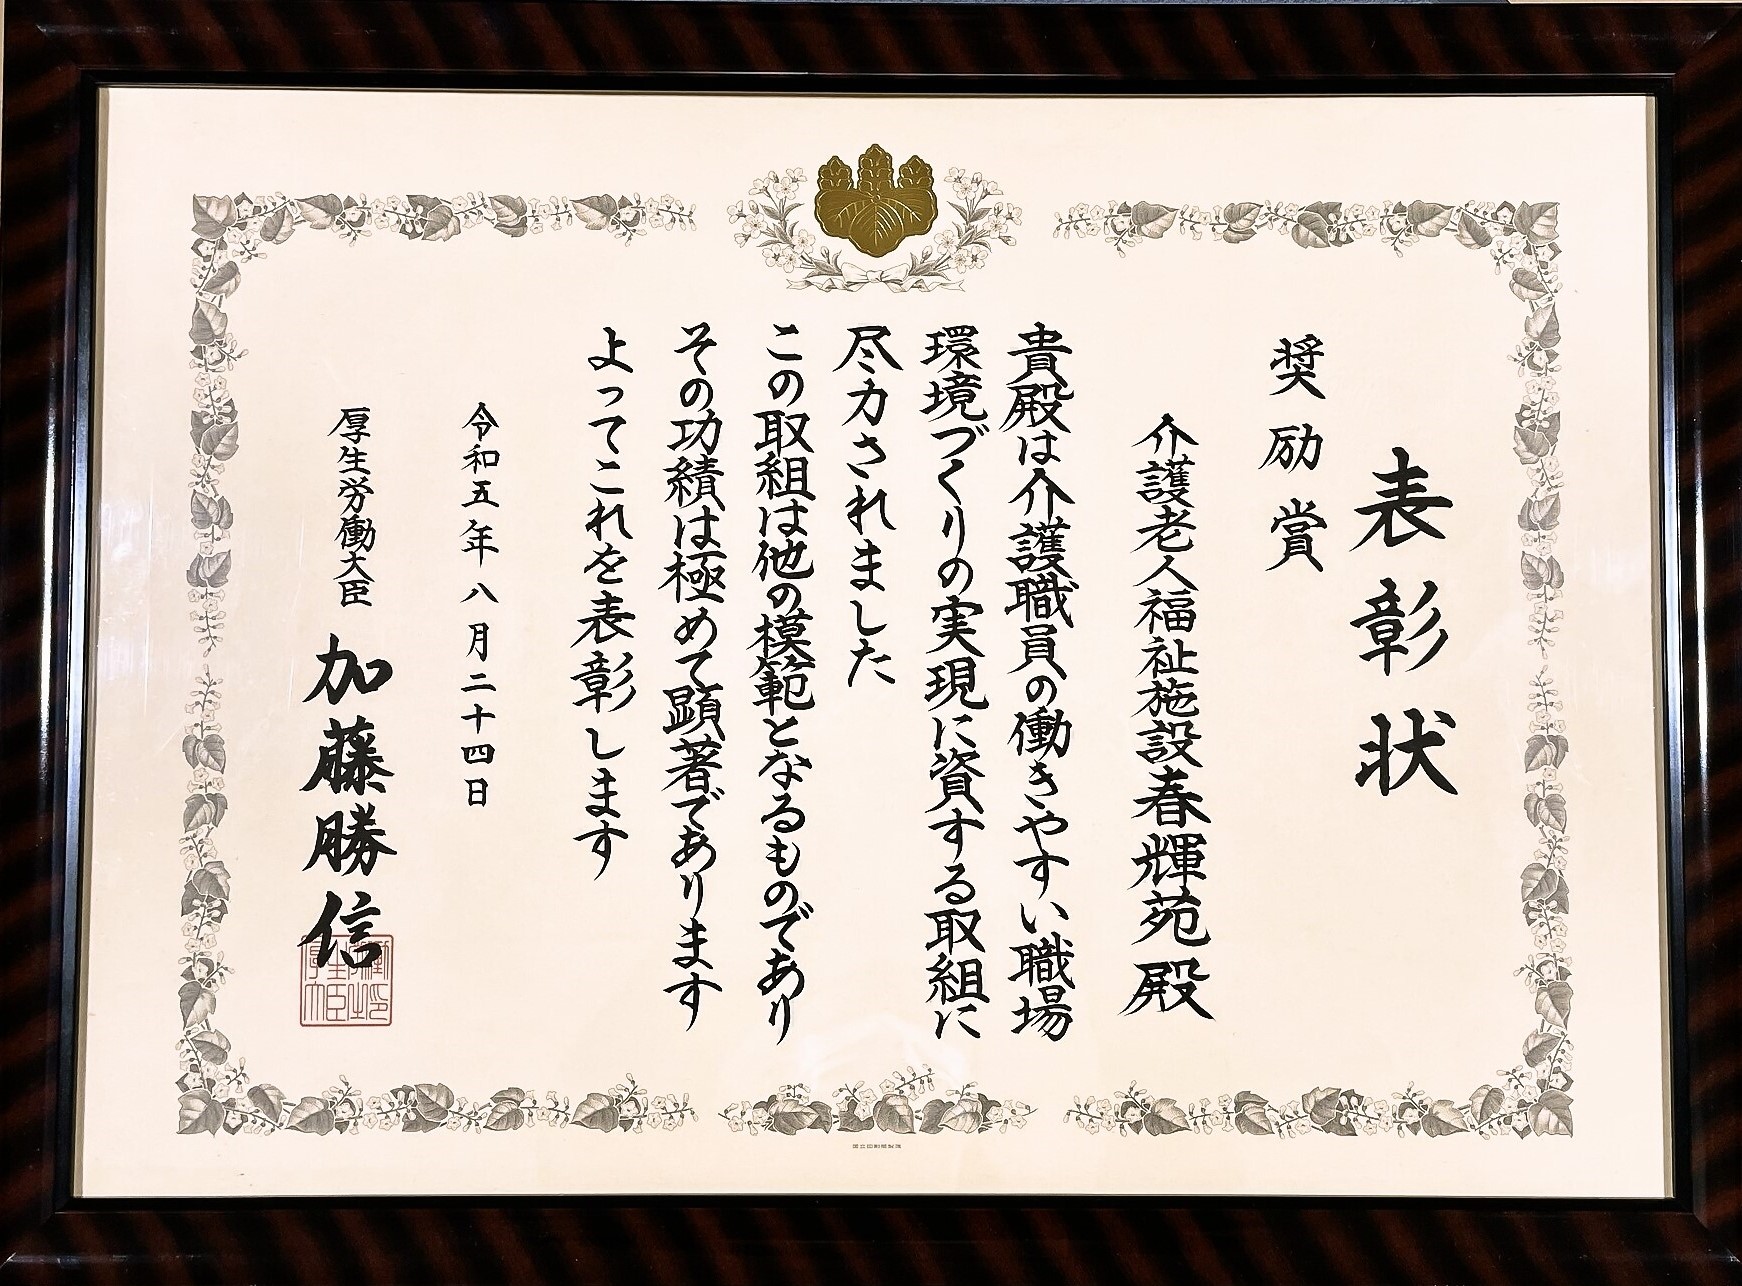 表彰状
奨励賞
介護老人福祉施設春輝苑殿
貴殿は介護職員の働きやすい職場
環境づくりの実現に資する取組に
尽力されました
この取組は他の模範となるものであり
その功績は極めて顕著であります
よってこれを表彰します
令和五年八月二十四日
厚生労働大臣 加藤勝信
国立印刷局製造